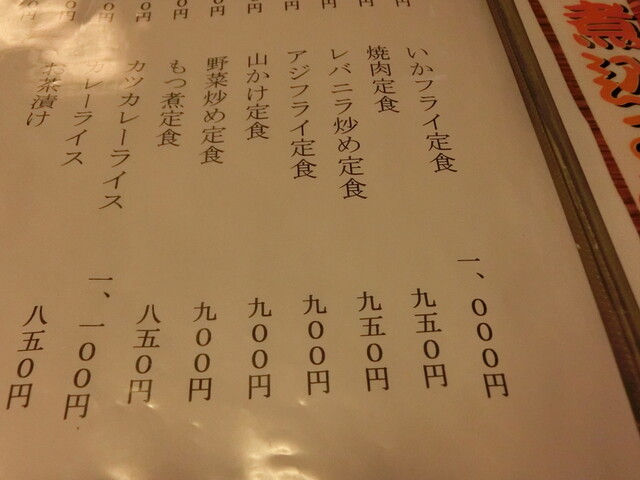 いかフライ定食 一、〇〇〇円
焼肉定食 九五〇円
レバニラ炒め定食 九五〇円
アジフライ定食 九〇〇円
山かけ定食 九〇〇円
野菜炒め定食 九〇〇円
もつ煮定食 八五〇円
カツカレーライス 一、一〇〇円
カレーライス 八五〇円
お茶漬け